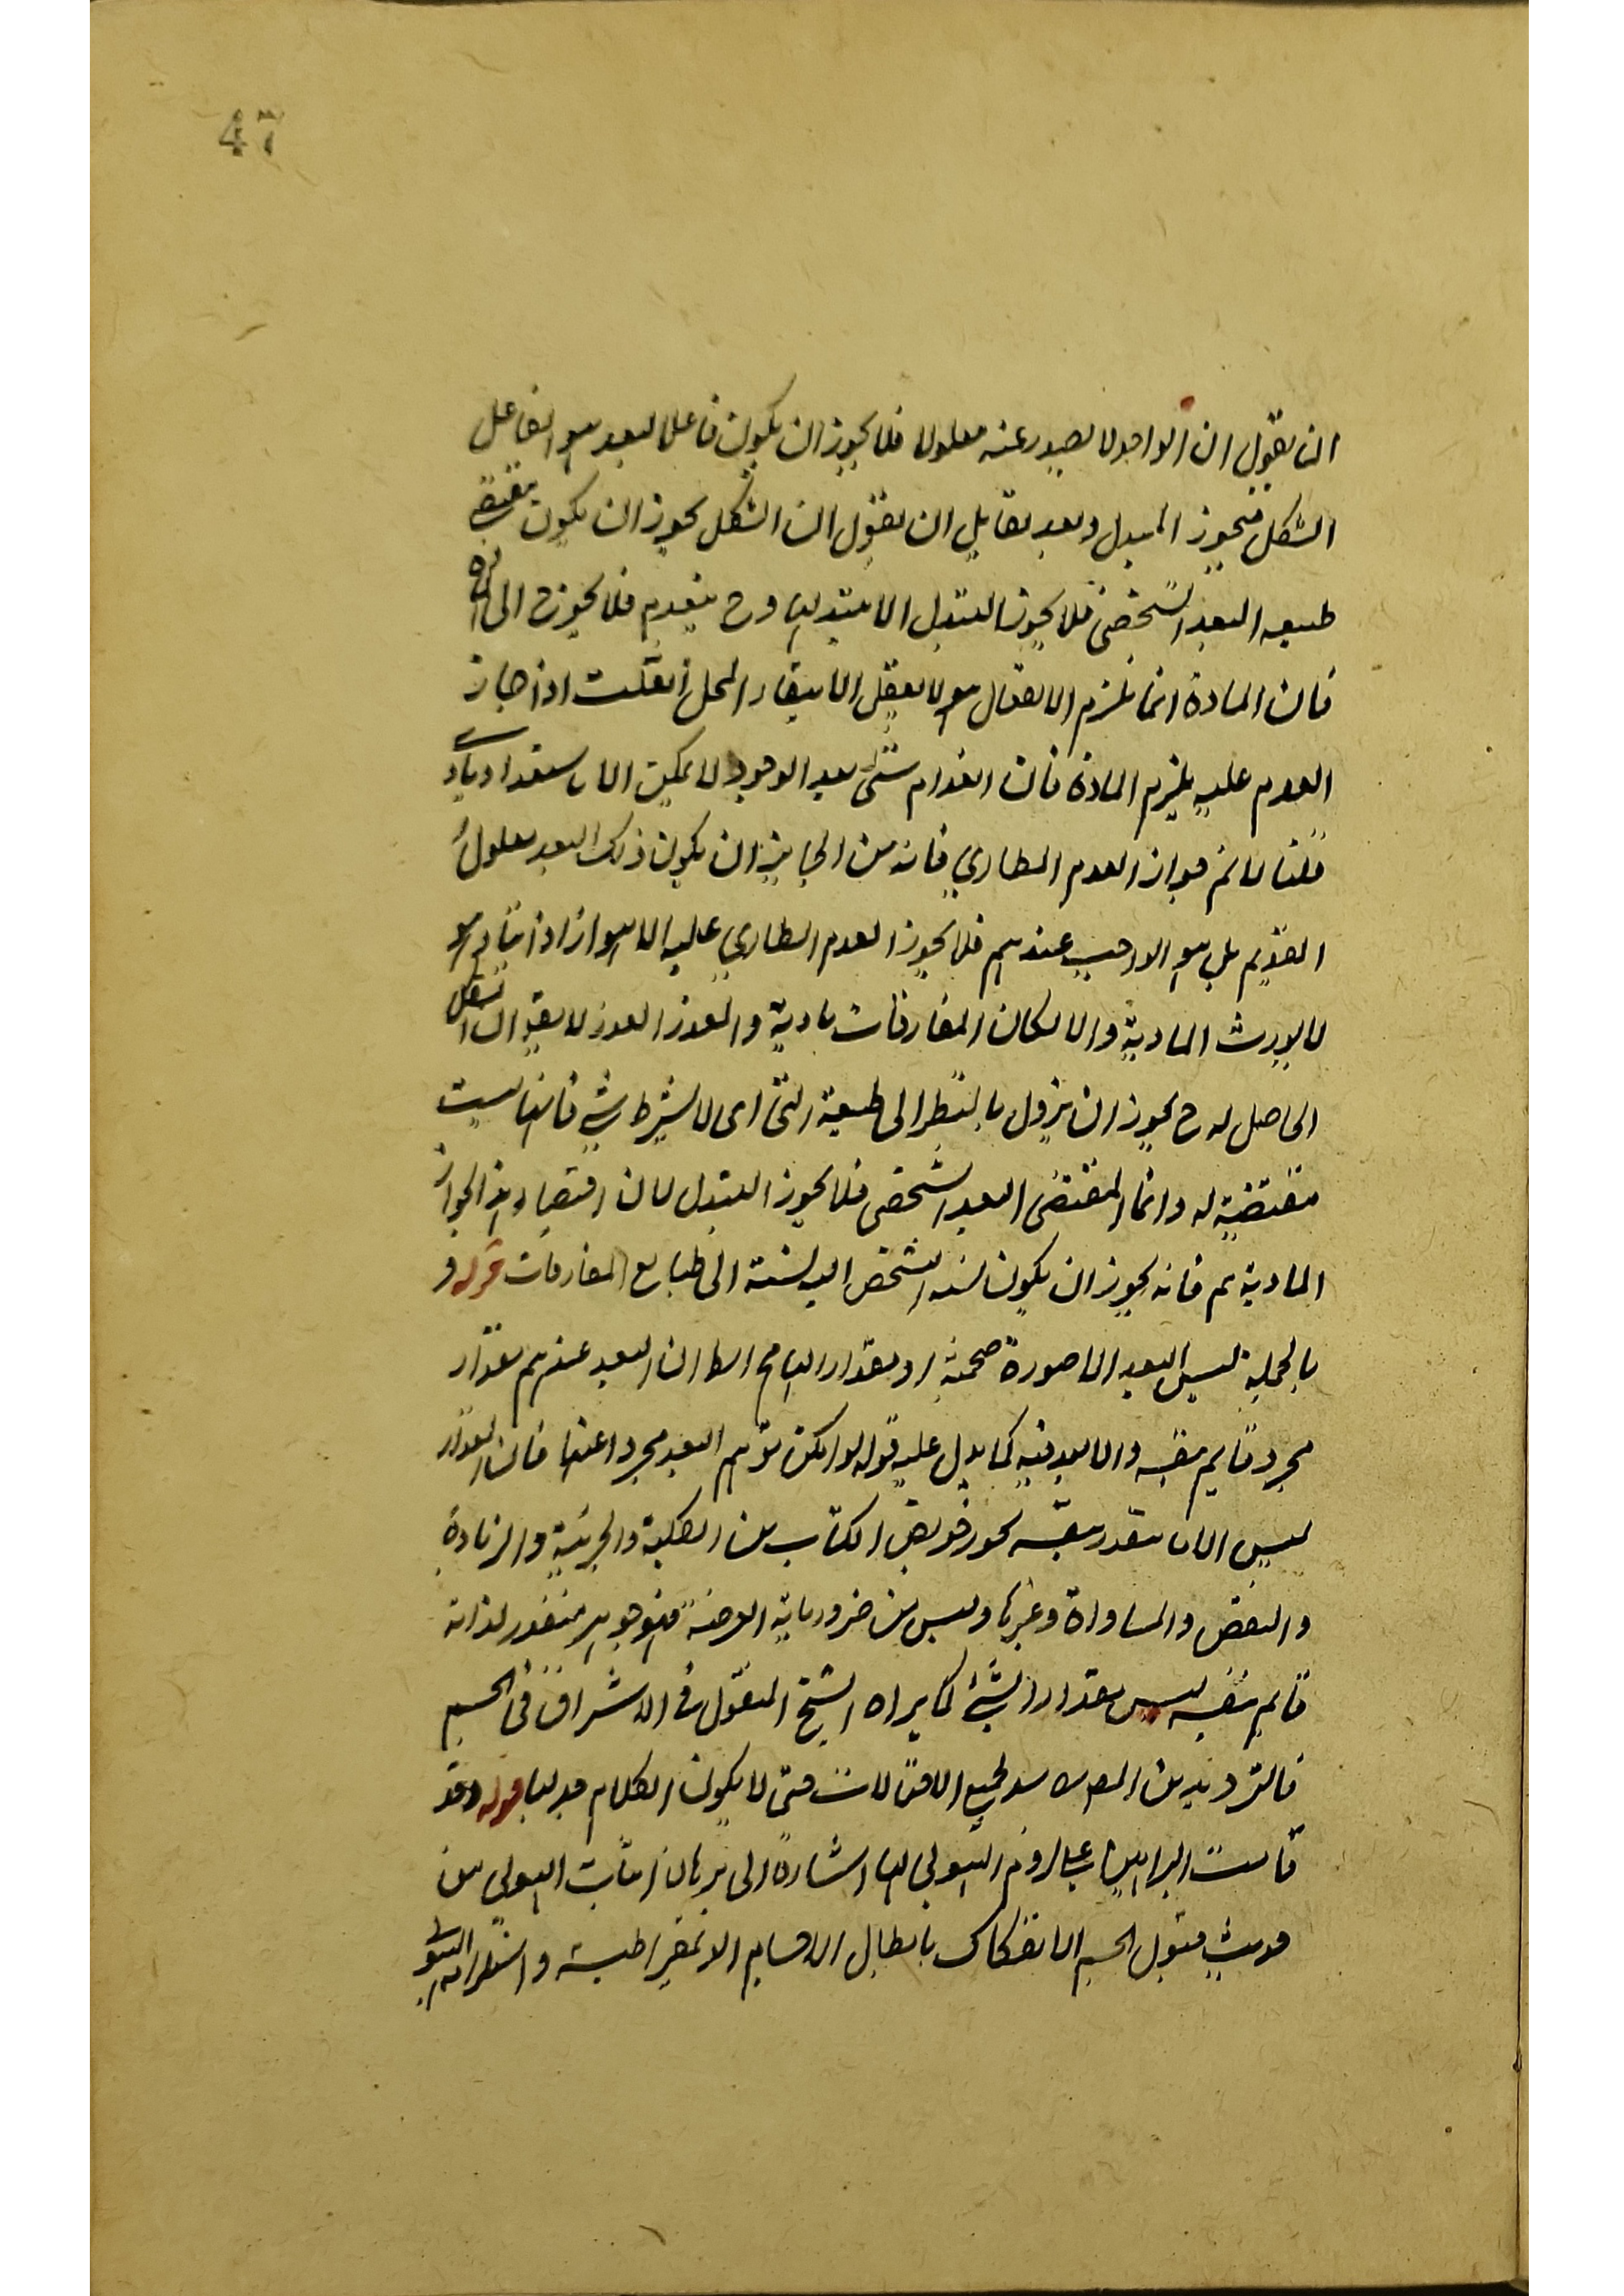 47
ان يقول ان الواحد لا يصدر عنه معلولا فلا يجوز ان يكون فاعل البعد هو الفاعل
الشكل فيجوز التبدل وبعد لقايل ان يقول ان الشكل يجوز ان يكون مقتضى
طبيعه البعد الشخصى فلا يجوز التبدل الا بتبديلها وح ينعدم فلا يجوز ح الى
فان المادة انما يلزم الانفعال هو لا يعقل الا ببقاء المحل فان قلت اذا جاز
العدم عليه يلزم المادة فان انعدام شئى بعد الوجود لا يمكن الا باستعداد مادى
قلنا لا نم جواز العدم الطارى فانه من الجايز ان يكون ذلك البعد معلول
القديم بل هو الواجب عندهم فلا يجوز العدم الطارى عليه الا جواز اذا قادم هو
لا يورث المادية والا لكان المفارقات مادية والعذر العذر لا يقال الشكل
الحاصل له ح يجوز ان يزول بالنظر الى طبيعة التى اى لا بشرط شئ فانها ليست
مقتضية له وانما المقتضى البعد الشخصى فلا يجوز التبدل لان اقتضاء هذا الجواز
المادية نم فانه يجوز ان يكون نسبه الشخص اليه نسبة الى طبايع المفارقات قوله و
بالجملة ليس البعد الا صورة جسمية او مقدارا الخ اعلم ان البعد عندهم مقدار
مجرد قايم بنفسه والا بعد فيه كما يدل عليه قوله لو امكن توهم البعد مجردا عنها فان المقدار
ليس الا ما يتقدر بنفسه نحو خواص الكتاب من الكلية والجزئية والزيادة
والنقص والمساواة وغيرها وليس من ضرورياته العرضية فهو جوهر متقدر لذاته
قايم بنفسه ليس مقدارا لشئ كما يراه الشيخ المقتول فى الاشراق فى الجسم
فالترديد من المص لجميع الاحتمالات حتى لا يكون الكلام جدليا قوله وقد
قامت البراهين على لزوم الهيولى لها اشارة الى برهان اثبات الهيولى من
حيث قبول الجسم الانفكاك بابطال الاجسام الديمقراطيسية واستلزامه الهيولى